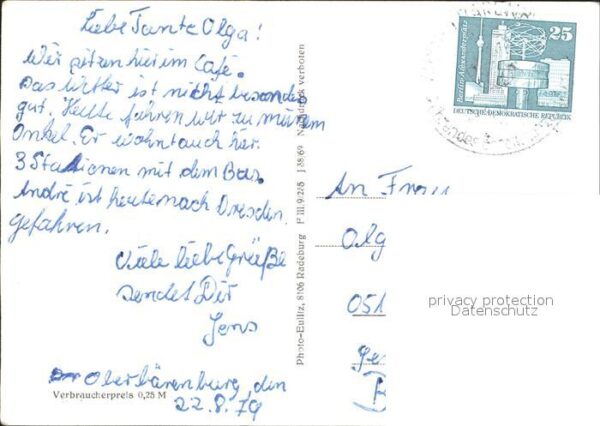 Liebe Tante Olga!
Wir sitzen hier im Café.
Das Wetter ist nicht besonders
gut. Heute fahren wir zu meinem
Onkel. Er wohnt auch hier.
3 Stationen mit dem Bus.
André ist heute nach Dresden
gefahren.
Viele liebe Grüße
sendet Dir
Jens
Oberbärenburg, den
22.8.79
Verbraucherpreis 0,25 M
Photo-Eulitz, 8106 Radeburg P III.9.2/5 J 38/69 Nachdruck verboten
25
Berlin-Alexanderplatz
DEUTSCHE DEMOKRATISCHE REPUBLIK
An Frau
Olg
051
privacy protection
Datenschutz
Ge
B